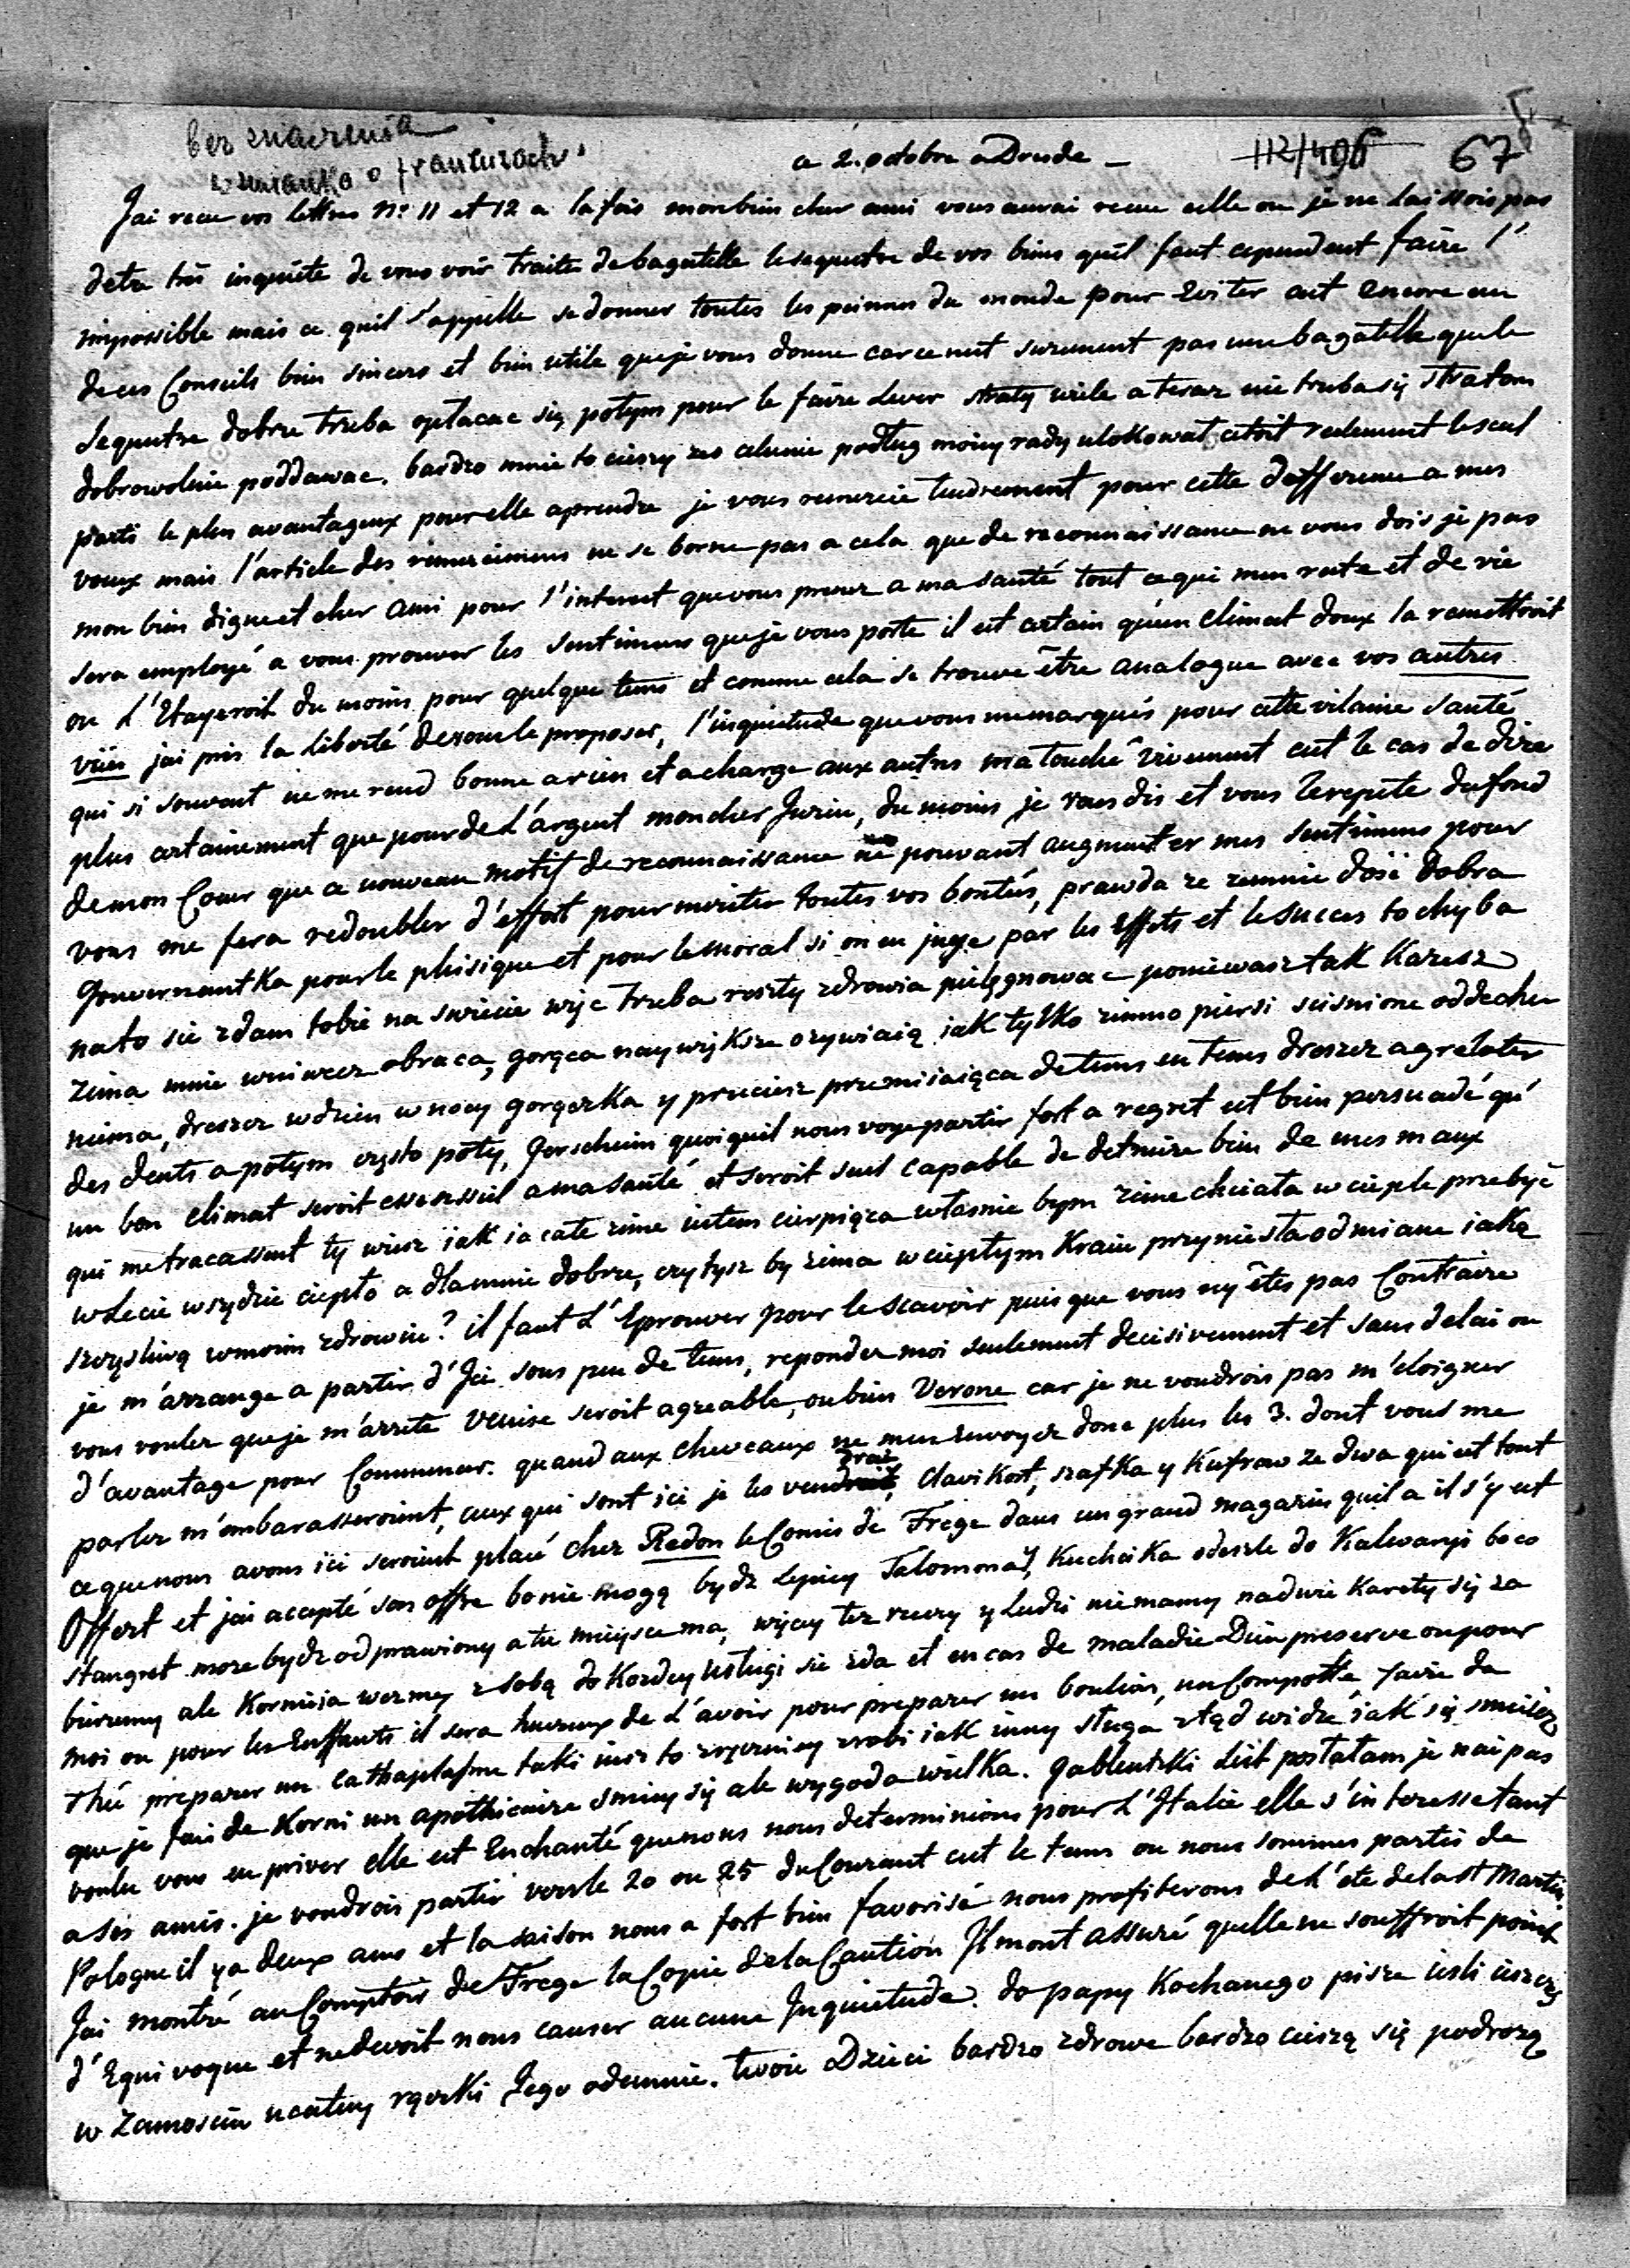 bez znaczenia
wzmianka o frankurach
a 2. octobre a Dresde
112/496 67
Jai recue vos lettres No 11 et 12 a la fois mon bien cher ami vous aurai recue celle ou je ne laissois pas
detre trés inquiéte de vous voir traiter de bagatelle le sequestre de vos biens quil faut cependent faire l'
impossible mais ce quil s'appelle se donner toutes les peinnes du monde pour Eviter cest encore un
de ces Conseils bien sinceres et bien utile que je vous donne car ce nest surement pas une bagatelle que le
Sequestre dobrze trzeba opłacac się potym pour le faire Lever straty wiele a teraz nie trzeba się stratom
dobrowolnie poddawac. bardzo mnie to cieszy zes celunie podług moiey rady ulokował cetoit reelement le seul
parti le plus avantageux pour elle a prendre je vous remercie tendrement pour cette defference a mes
voeux mais l'article des remerciemens ne se borne pas a cela que de reconnaissance ne vous dois je pas
mon bien digne et cher ami pour l'interest que vous prenez a ma santé tout ce qui men reste et de vie
sera employé a vous prouver les sentimens que je vous porte il est certain qu'un climat doux la remettroit
ou L'Etayeroit du moins pour quelque tems et comme cela se trouve être analogue avec vos autres
vües jai pris la liberté de vous le proposer, l'inquietude que vous me marqués pour cette vilaine santé
qui si souvent ne me rend bonne a rien et a charge aux autres ma touché vivement cest le cas de dire
plus certainement que pour de L'argent mon cher Jozin, du moins je vous dis et vous le repete du fond
de mon Coeur que ce nouveau motif de reconnaissance ne pouvant augmenter mes sentimens pour
vous me fera redoubler d'effort pour meriter toutes vos bontés, prawda ze zemnie dosć dobra
Gouvernantka pour le phisique et pour le moral si on en juge par les Effets et le succes to chyba
na to sie zdam tobie na swiecie więc trzeba reszty zdrowia pielęgnowac poniewasz tak Kazesz
Zima mnie wniwecz obraca, gorąca naywiększe ozywiaią iak tylko zimno piersi scisnione oddechu
niema, dreszcz w dzien w nocy gorączka y przeciesz przemiiaiąca de tems en tems dreszcz a greloter
des dents a potym czysto poty, Gerscheim quoi quil nous voye partir fort a regret est bien persuadé qu'
un bon climat seroit essentiel a ma santé et seroit seul capable de detruire bien de mes maux
qui me tracassent ty wiesz iak ia całe zime iestem cierpiąca własnie bym zime chciała w cieple przebyć
w Lecie wszędzie ciepło a dlamnie dobrze, czytysz by zima w ciepłym Kraiu przyniesła odmiane iaką
szczęsliwą w moim zdrowiu? il faut L'Eprouver pour le scavoir puis que vous ny êtes pas Contraire
je m'arrange a partir d'Ici sous peu de tems, reponder moi seulement decisivement et sans delai ou
vous vouler que je m'arrete Venise seroit agreable, ou bien Verone car je ne voudrois pas m'eloigner
d'avantage pour Commencer. quand aux chevaux ne men Envoyez donc plus les 3. dont vous me
parler m'embarasseroient, ceux qui sont ici je les vendrai, Clavikort, szafka y Kufrow ze dwa qui est tout
ce que nous avons ici seroient placé chez Redon le Comis de Frege dans un grand magazin quil a il s'y est
Offert et jai accepté son offre bo nie mogą bydz lepiey Salomona, Kucheika odeszle do Kalwaryi bo co
stangret moze bydz odprawiony a tu mieysce ma, więcy tez rzeczy y Ludzi niemamy na dwie Karety się za
bierzemy ale Kornieia wezmey z sobą do Kazdey Usługi sie zda et en cas de maladie Dieu preserve ou pour
moi ou pour les Enffants il sera heureux de L'avoir pour preparer un boulion, un Compotte, faire du
Thé preparer un cathaplasme taki iusz to zręczniey zrobi iak inny sługa ztąd widze iak się smieiesz
que je fais de Korni un apothicaire smiey się ale wygoda wielka. Gablentzki List posłałam je nai pas
voulu vous en priver elle est Enchanté que nous nous determinions pour L'Italie elle s'interesse tant
a ses amis. je voudrois partir vers le 20 ou 25 du Courant cest le tems ou nous sommes partis de
Pologne il y a deux ans et la saison nous a fort bien favorisé nous profiterons de L'eté de la St Martin
Jai montré au Comptoir de Frege la Copie de la Caution Il mont assuré quelle ne souffroit point
d'Equivoque et ne devoit nous causer aucune Inquietude. do papy Kochanego pisze iesli ieszcze
w Zamosciu ucałuy rączki Jego odemnie. twoie Dzieci bardzo zdrowe bardzo cieszą się podrozą